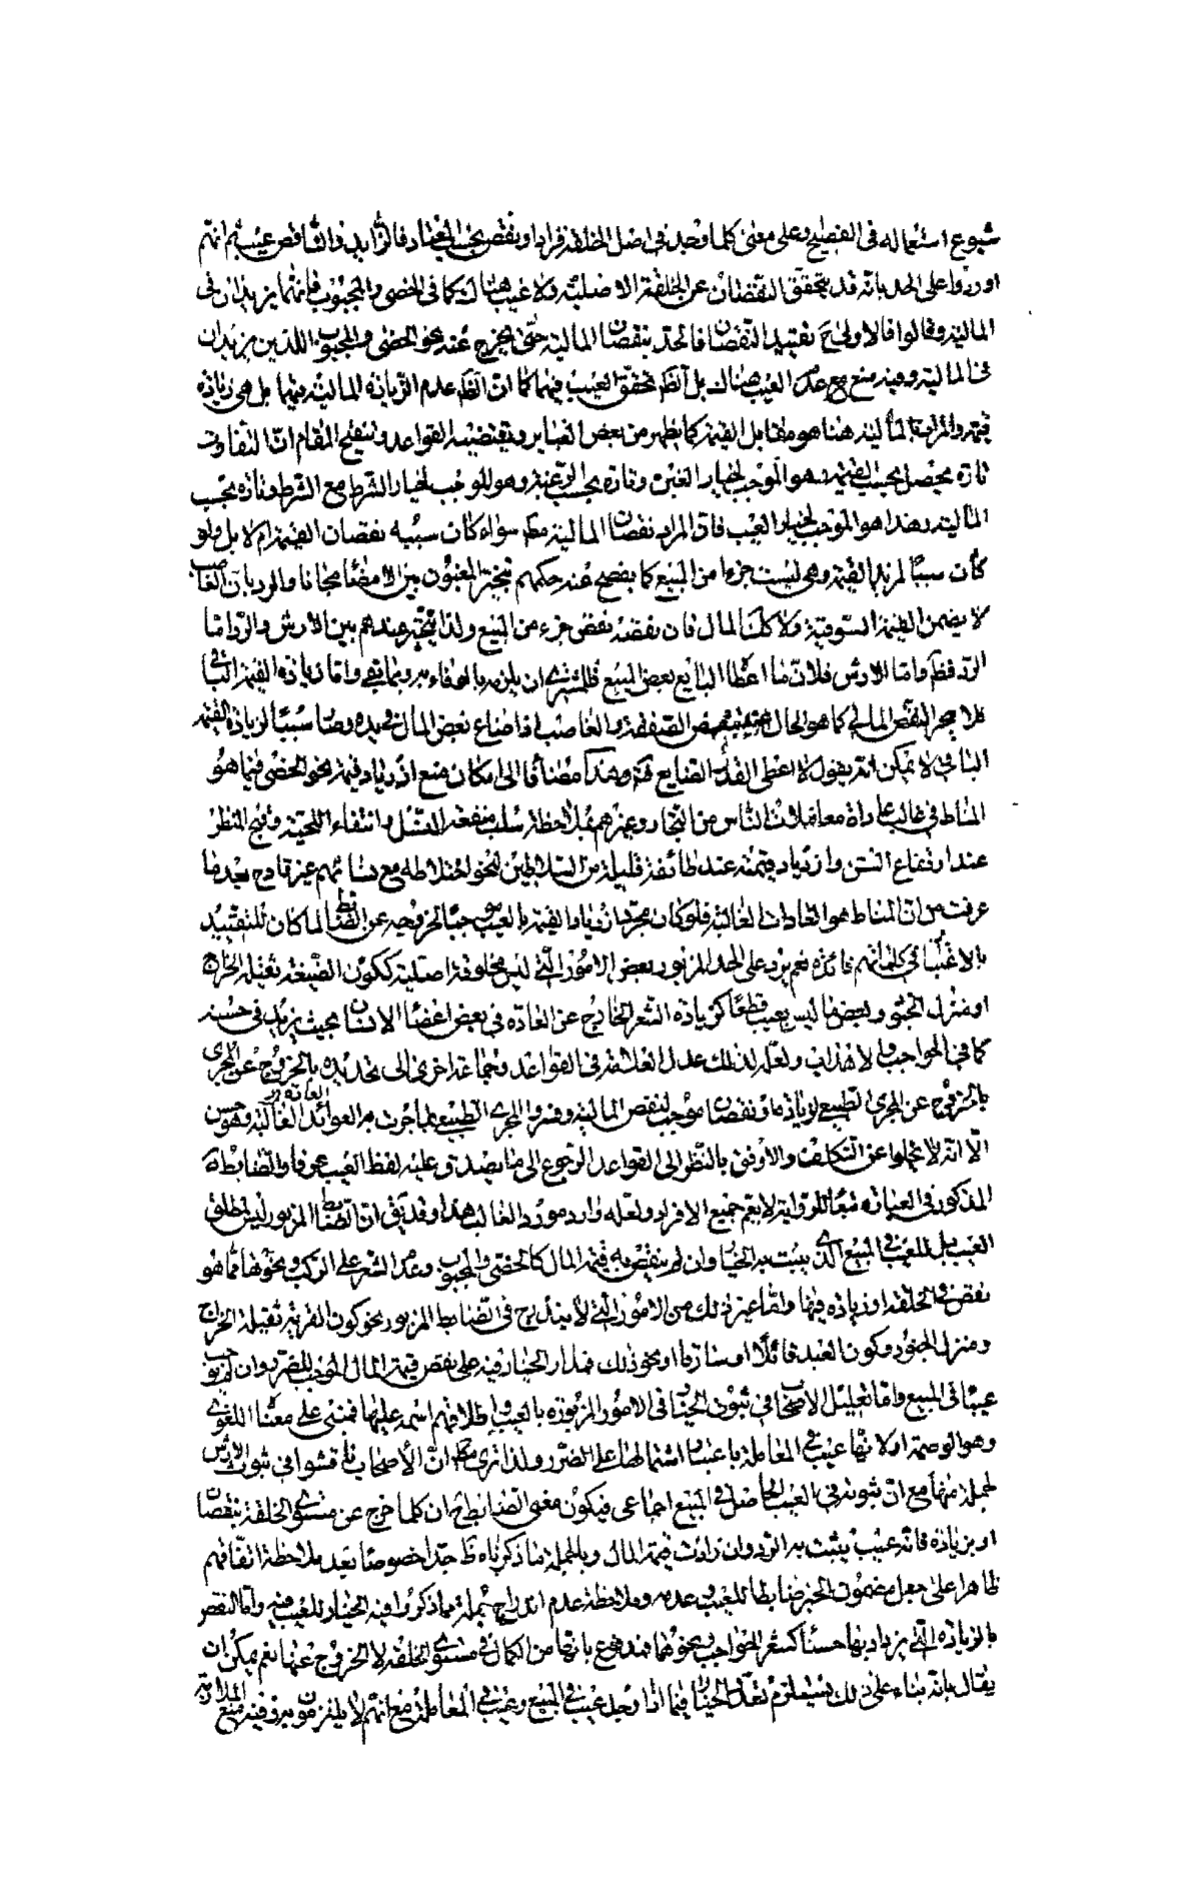 شيوع استعماله فى الفصيح وعلى معنى كلما وجد فى اصل الخلقة فزاد او نقص بحسب المعتاد فالزايد والناقص عيب ثم انهم
اوردوا على الحد بانه قد يتحقق النقصان عن الخلقة الاصلية ولا عيب هناك كما فى الخصى والمجبوب فانهما يزيدان فى
المالية وقالوا فالاولى تقييد النقصان فالحد بنقصان المالية حتى يخرج عنه نحو الخصى والمجبوب اللذين يزيدان
فى المالية وفيه منع مع عدم العيب هناك بل الظ تحقق العيب فيهما كما ان الظ عدم الزيادة المالية فيهما بل هى زيادة
قيمة والمراد بالمالية هنا هو مقابل القيمة كما يظهر من بعض العباير ويقتضيه القواعد وتنقيح المقام ان التفاوت
تارة يحصل بحسب القيمة وهو الموجب لخيار الغبن وتارة بحسب الرغبة وهو الموجب لخيار الشرط مع الشرط وتارة بحسب
المالية وهذا هو الموجب لخيار العيب فان المراد نقصان المالية مط سواء كان سببه نقصان القيمة ام لا بل ولو
كان سببا لمزيد القيمة وهى ليست جزءا من المبيع كما يفصح عنه حكمهم بتخيير المغبون بين الامضاء مجانا والرد بان الغاصب
لا يضمن القيمة السوقية ولا كك المال فان نقصه نقص جزء من المبيع ولذا يتخير عندهم بين الارش والرد اما
الرد فظ واما الارش فلان ما اعطا البايع بعض المبيع فللمشترى ان يلزمه بالوفاء به وبما بقى واما زيادة القيمة الثانى
فلا يجبر النقص المالى كما هو الحال فى تبعض الصفقة والغاصب اذا ضاع بعض المال فى يده وصار سببا لزيادة القيمة
الباقى لا يمكن انه يقول لا اعطى القدر الضايع فت وهذا مضافا الى امكان منع ازدياد قيمة نحو الخصى فيما هو
المناط فى غالب عادة معاملات الناس من التجار وغيرهم بملاحظة سلب منفعة النسل وانتفاء اللحية وقبح المنظر
عند ارتفاع السن وازدياد قيمته عند طائفة قليلة من السلاطين لنحو اختلاطه مع نسائهم غير قادح بعد ما
عرفت من ان المناط هو العادات الغالبة فلو كان مجرد ازدياد القيمة بالعيب موجبا لخروجه عن الضابط لما كان للتقييد
بالاغلب فى كلماتهم فائدة نعم يرد على الحد المزبور بعض الامور التى ليس مخلوقة اصلية ككون الضيعة ثقيلة الخراج
او منزل الجنود وبعض ما ليس بعيب قطعا كزيادة الشعر الخارج عن العادة فى بعض اعضاء الانسان بحيث يزيد فى حسنه
كما فى الحواجب والاهداب ولعله لذلك عدل العلامة فى القواعد وجماعة اخرى الى تحديده بالخروج عن المجرى
بالخروج عن المجرى الطبيعى لزيادة او نقصان موجب لنقص المالية وفسروا المجرى الطبيعى بما جرت به العوائد الغالبة وهو حسن
الا انه لا يخلوا عن التكلف والاوفق بالنظر الى القواعد الرجوع الى ما يصدق عليه لفظ العيب عرفا والضابطة
المذكور فى العبارة تبعا للرواية لا يعم جميع الافراد ولعله وارد مورد الغالب هذا وقد يق ان الضابط المزبور ليس لمطلق
العيب بل للعيب فى المبيع الذى يثبت به الخيار وان لم ينقص به قيمة المال كالخصى والمجبوب وعدم الشعر على الركب ونحوها مما هو
نقص فى الخلقة او زيادة فيها واما غير ذلك من الامور التى لا يندرج فى الضابط المزبور نحو كون القرية ثقيلة الخراج
ومنزل الجنود وكون العبد قاتلا او سارقا او نحو ذلك فمدار الخيار فيه على نقص قيمة المال الموجب للضرر وان لم يوجب
عيبا فى المبيع واما تعليل الاصحاب فى ثبوت الخيار فى الامور المزبورة بالعيب واطلاقهم اسمه عليها فمبنى على معناه اللغوى
وهو الوصمة او لانها عيب فى المعاملة باعتبار اشتمالها على الضرر ولذا ترى ان الاصحاب ناقشوا فى ثبوت الارش
لجملة منها مع ان ثبوته فى العيب الحاصل فى المبيع اجماعى فيكون معنى الضابط ح ان كلما خرج عن مستوى الخلقة بنقصان
او بزيادة فانه عيب يثبت به الرد وان زادت قيمة المال وبالجملة ما ذكرناه ظ جدا خصوصا بعد ملاحظة اتفاقهم
ظاهرا على جعل مضمون الخبر ضابطا للعيب وعدمه وملاحظة عدم اندراج جملة مما ذكروا فيه الخيار للعيب فيه واما النقص
بالزيادة التى يزداد بها حسنا كشعر الحواجب ونحوها فمدفوع بانها من الكمال فى مستوى الخلقة لا الخروج عنها نعم يمكن ان
يقال بانه بناء على ذلك يستلزم تعدد الخيار فيما اذا وجد عيب فى المبيع وعيب فى المعاملة مع انهم لا يلتزمون به وفيه منع الملازمة